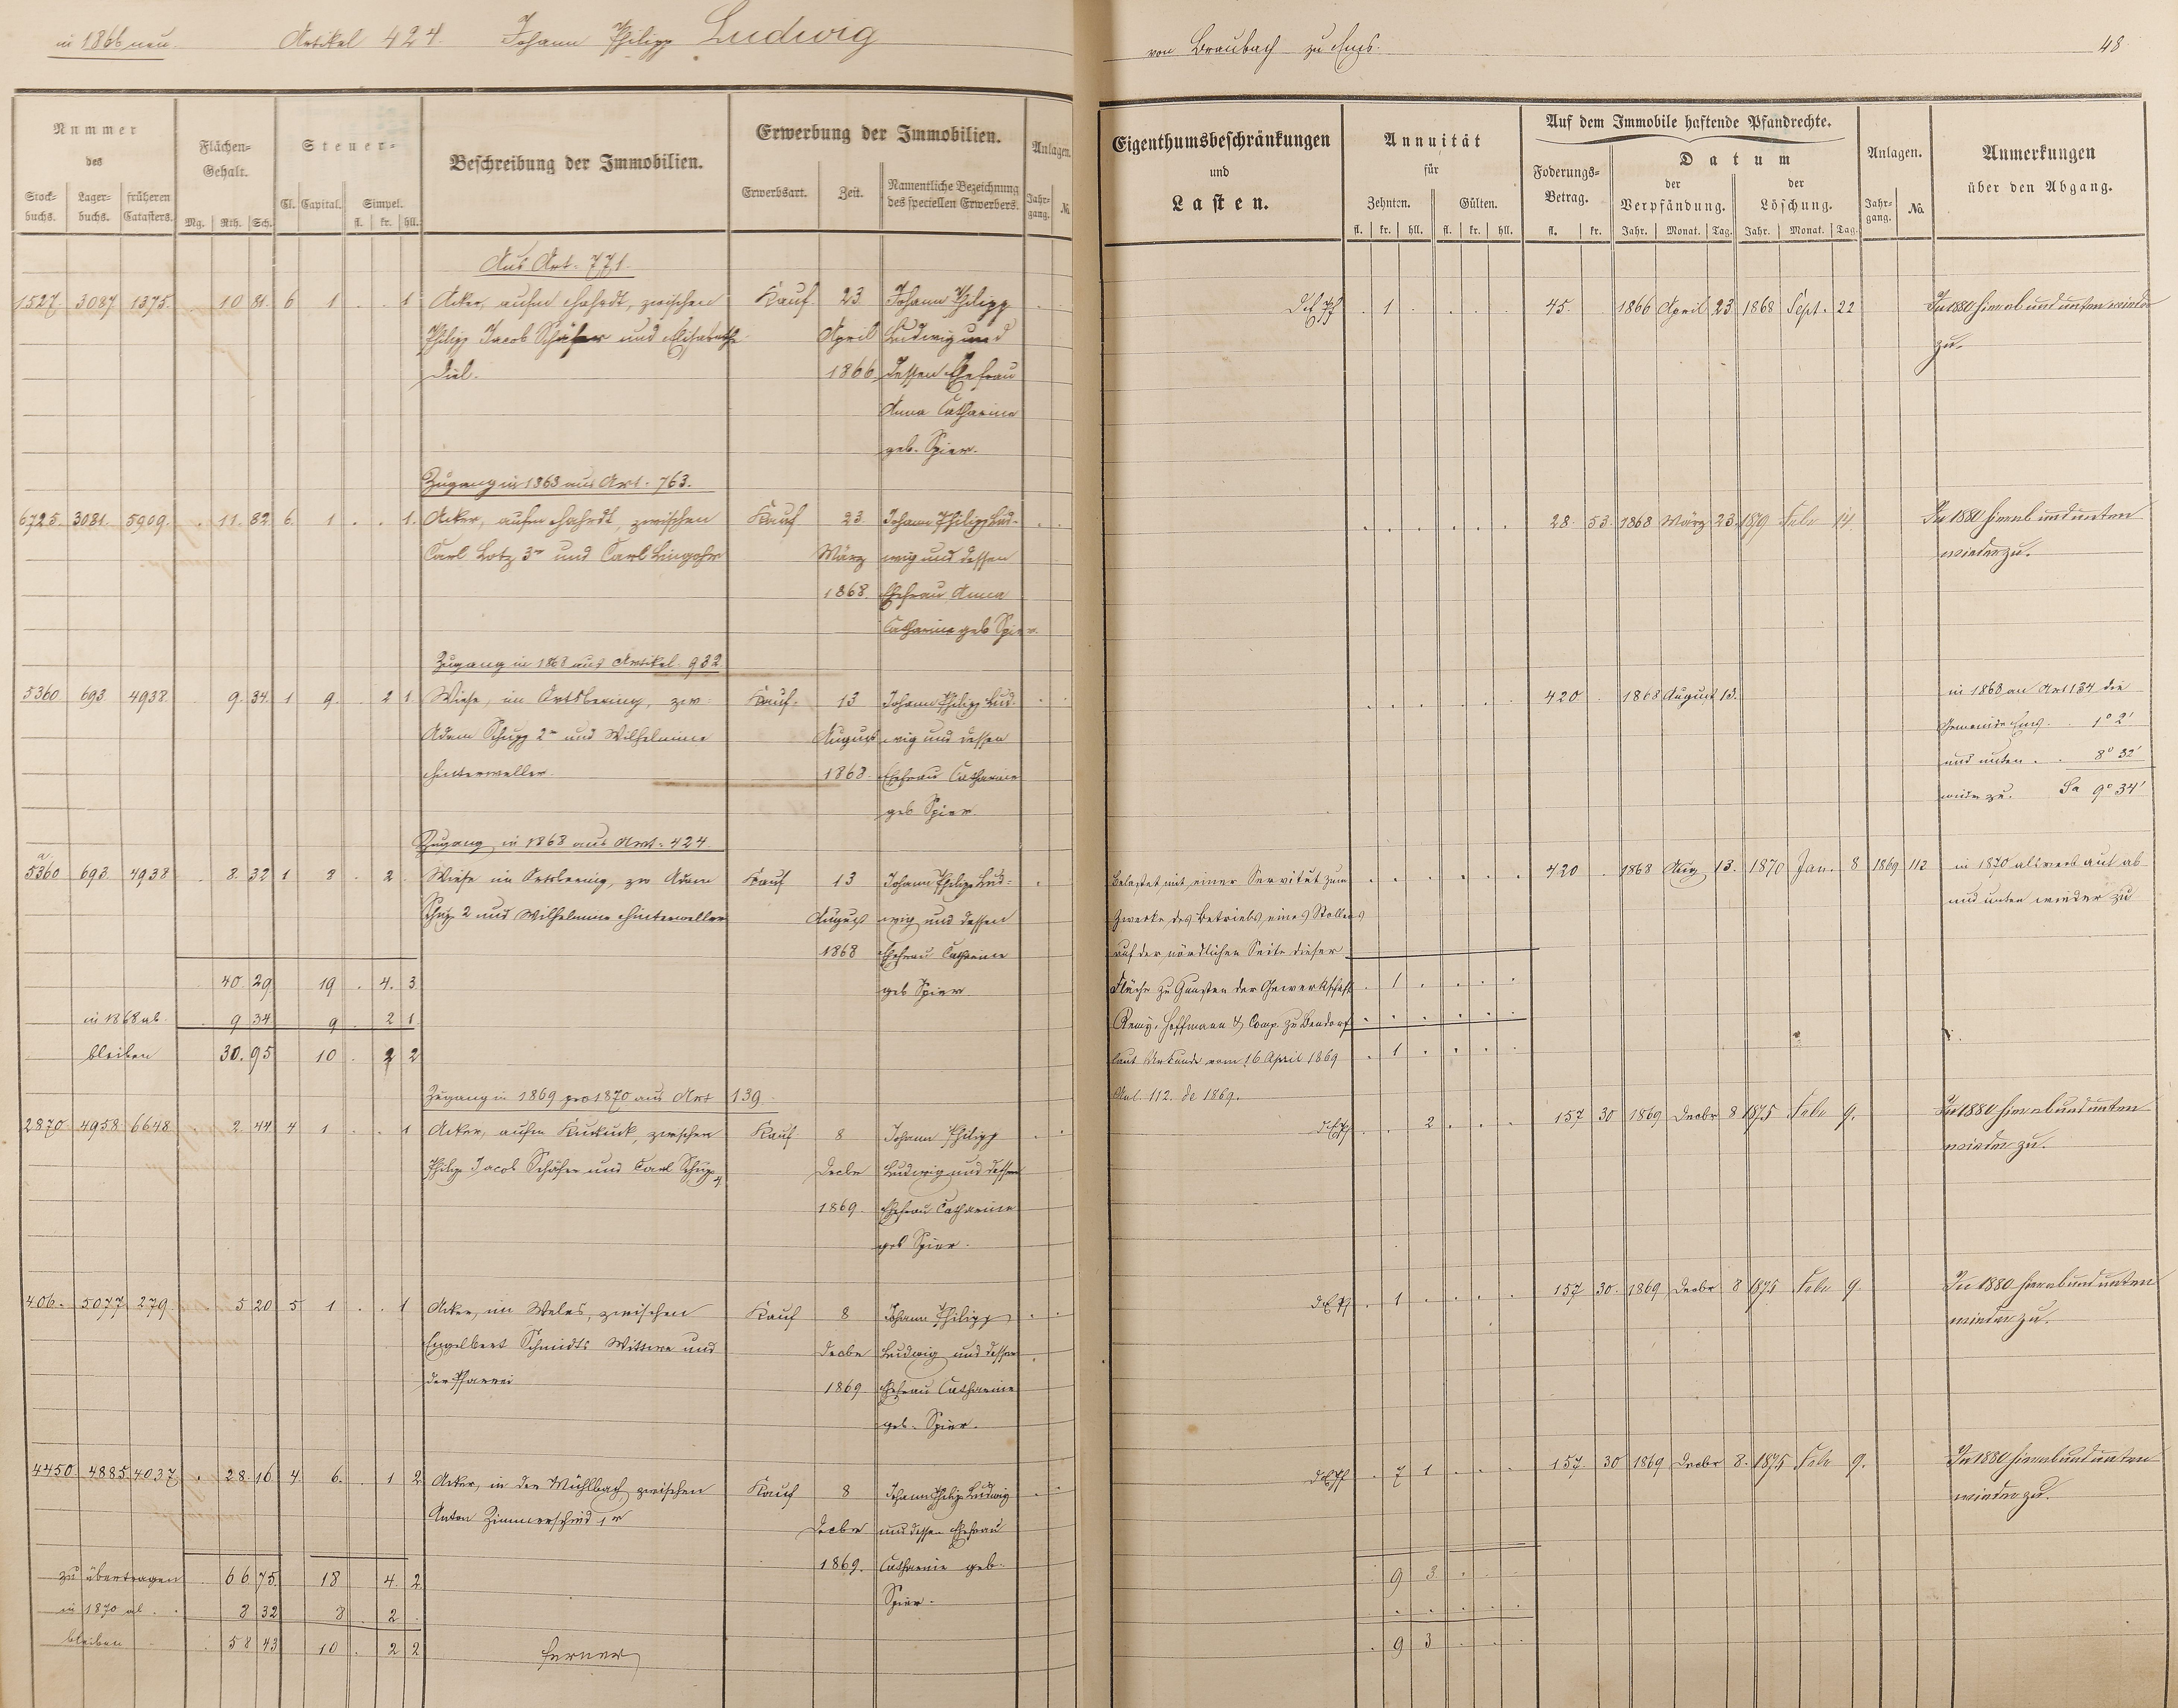 in 1866 neu.
Artikel 424. Johann Philipp Ludwig
von Braubach zu Ems.
48
Nummer des
Stockbuchs. Lagerbuchs. früheren Catasters.
Flächen-Gehalt.
Mg. Rth. Sch.
Steuer-
Cl. Capital. Simpel.
fl. kr. hll.
Beschreibung der Immobilien.
Erwerbung der Immobilien.
Erwerbsart. Zeit. Namentliche Bezeichnung des speciellen Erwerbers.
Anlagen.
Jahrgang. №
Eigenthumsbeschränkungen und Lasten.
Annuität für
Zehnten. Gülten.
fl. kr. hll. fl. kr. hll.
Auf dem Immobile haftende Pfandrechte.
Foderungs-Betrag.
fl. kr.
Datum
der Verpfändung. der Löschung.
Jahr. Monat. Tag. Jahr. Monat. Tag.
Anlagen.
Jahrgang. No.
Anmerkungen über den Abgang.
Aus Art. 771.
1527. 3087 1375. . 10 81. 6 1 . . 1 Acker, aufm Hahrdt, zwischen Kauf. 23. Johann Philipp . 1 . . . . 45. . 1866 April 23. 1868 Sept. 22 In 1880 hier ab und unten wieder
Philipp Jacob Schäfer und Elisabethe April Ludwig und zu.
Diel. 1866 dessen Ehefrau
Anna Catharine
geb. Spier.
Zugang in 1868 aus Art. 763.
6725. 3081. 5909. . 11. 82 6. 1 . . 1. Acker, aufm Hahrdt, zwischen Kauf 23. Johann Philipp Lud- . . . . . . 28. 53. 1868 März 23. 1879 Febr 14. In 1880 hier ab und unten
Carl Lotz 3r und Carl Lingohr März wig und dessen wieder zu.
1868. Ehefrau Anna
Catharine geb Spier.
Zugang in 1868 aus Artikel 932
5360 693 4938. . 9. 34. 1 9. . 2 1 Wiese, im Ortsbering, zw: Kauf. 13 Johann Philipp Lud- . . . . . . 420 . 1868 August 13. in 1868 an Art 134 die
Adam Schupp 2r und Wilhelmine August wig und dessen Gemeinde Ems . . 1° 2'
Hinterweller. 1868. Ehefrau Catharine und unten . . 8° 32'
geb Spier. wieder zu. Sa 9° 34'
Zugang in 1868 aus Art. 424.
a
5360 693 4938 . 8. 32 1 8 . 2 . Wiese im Ortsbering, zw Adam Kauf 13 Johann Philipp Lud- . Belastet mit einer Servitut zum . . . . . . 420 . 1868 Aug 13. 1870 Jan. 8 1869 112
Schupp 2 und Wilhelmine Hinterweller August wig und dessen Zwecke des Betriebs eines Stollens und unten wieder zu
1868 Ehefrau Catharine auf der nördlichen Seite dieser
40 29 19 . 4. 3 geb Spier Fläche zu Gunsten der Gewerkschaft . 1 . . . .
in 1868 ab. . 9 34 9 . 2 1 Remy, Hoffmann & Comp. zu Bendorf . . . . . .
bleiben 30. 95 10 . 2 2 laut Urkunde vom 16 April 1869 . 1 . . . .
Zugang in 1869 pro 1870 aus Art 139. Anl. 112. de 1869.
2870 4958 6648 . 2. 44 4 1 . . 1 Acker, aufm Kuckuck, zwischen Kauf 8 Johann Philipp . . . . 2 . . . 157 30 1869 Decbr 8 1875 Febr 9. In 1880 hier ab und unten
Philipp Jacob Schäfer und Carl Schupp 4 Decbr Ludwig und dessen wieder zu.
1869. Ehefrau Catharine
geb Spier.
406. 5077 279 5 20 5 1 . . 1 Acker, im Weles, zwischen Kauf 8 Johann Philipp . . . 1 . . . . 157 30. 1869 Decbr 8 1875 Febr 9. In 1880 hier ab und unten
Engelbert Schmidts Wittwe und Decbr Ludwig und dessen wieder zu.
der Pfarrei 1869 Ehefrau Catharine
geb. Spier.
4450 4885 4037 . 28. 16 4 6. . 1 2 Acker, in der Mühlbach, zwischen Kauf 8 Johann Philipp Ludwig . . . 7 1 . . . 157 30 1869 Decbr 8. 1875 Febr 9. In 1880 hier ab und unten
Anton Zimmerschied 1r Decbr und dessen Ehefrau wieder zu.
1869. Catharine geb.
zu übertragen . 66 75 18 4. 2 Spier. . 9 3 . . .
in 1870 ab . . 8 32 8 . 2 . . . . . . .
bleiben . 58 43 10 . 2 2 ferner . 9 3 . . .